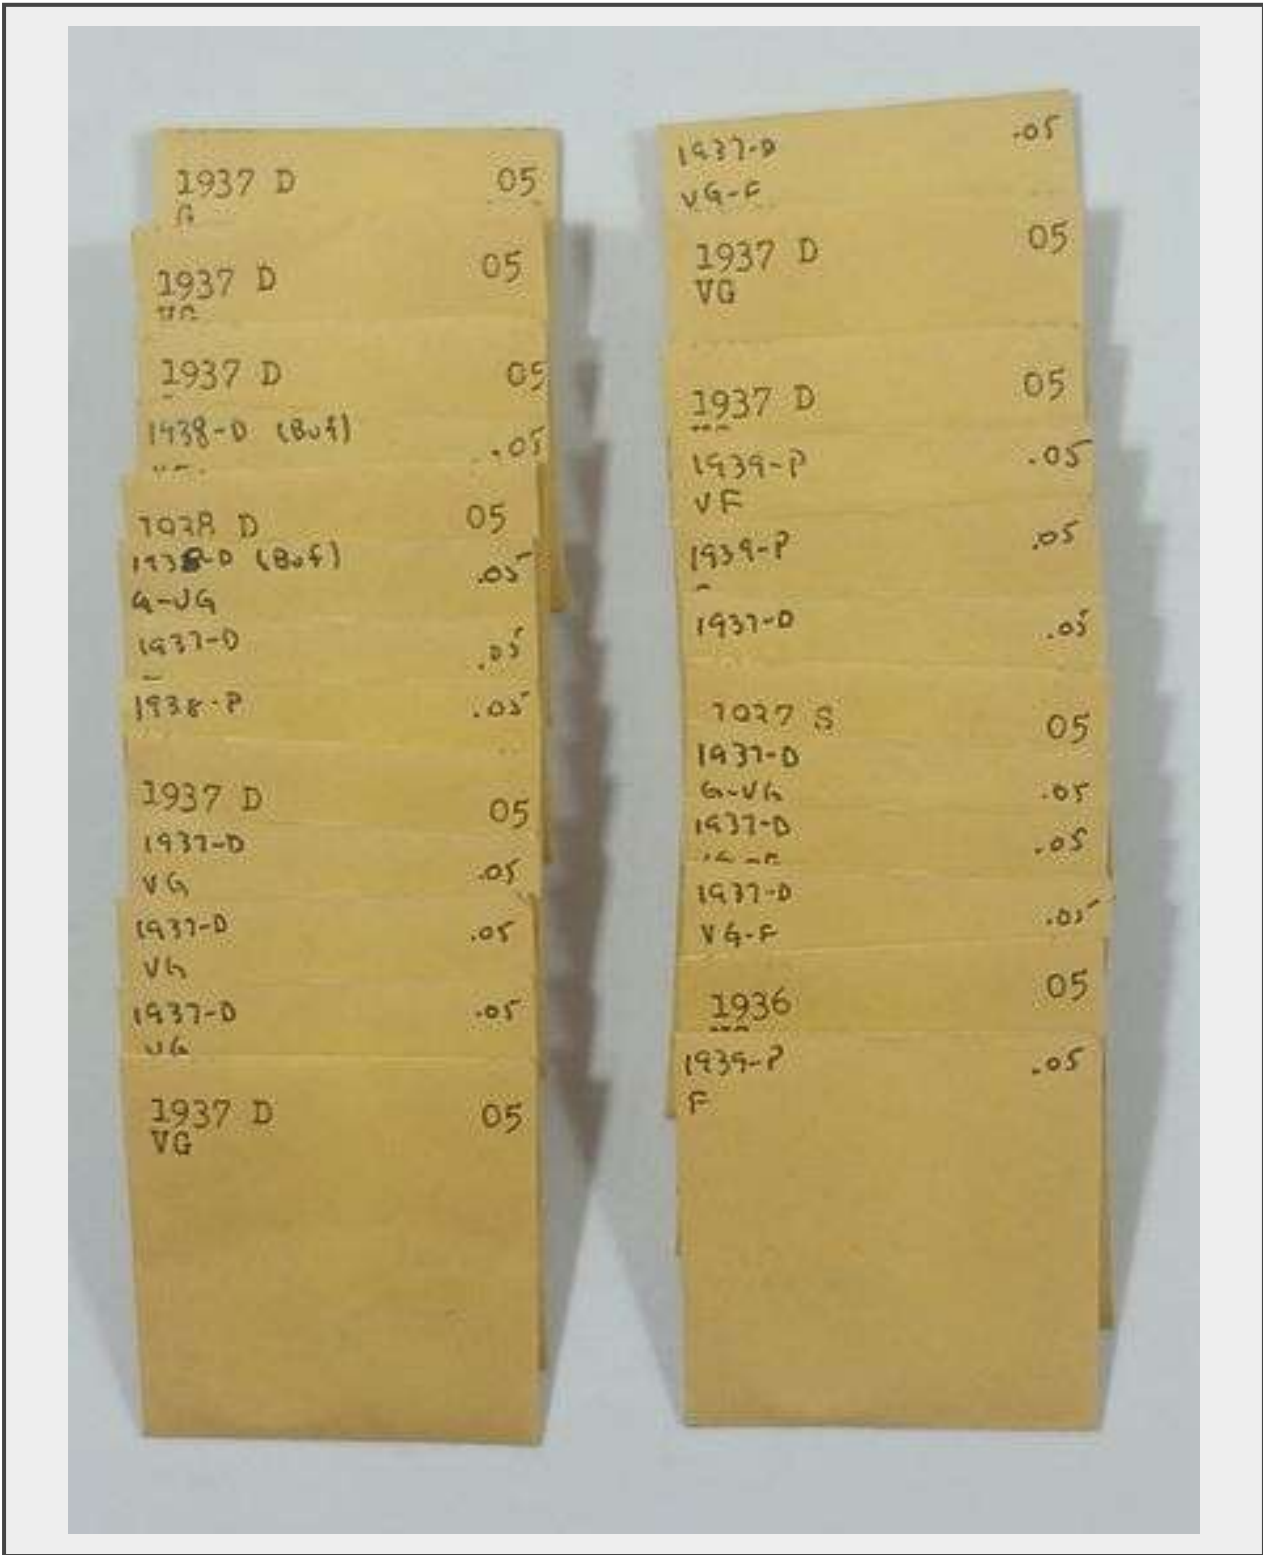 1937 D 05
G
1937 D 05
VG
1937 D 05
1938-D (Buf) .05
1938 D 05
1938-D (Buf) .05
G-VG
1937-D .05
1938-P .05
1937 D 05
1937-D
VG .05
1937-D .05
VG
1937-D .05
VG
1937 D 05
VG
1937-D .05
VG-F
1937 D 05
VG
1937 D 05
1939-P .05
VF
1939-P .05
1937-D .05
1937 S 05
1937-D
G-VG .05
1937-D .05
1937-D
VG-F .05
1936 05
1939-P .05
F